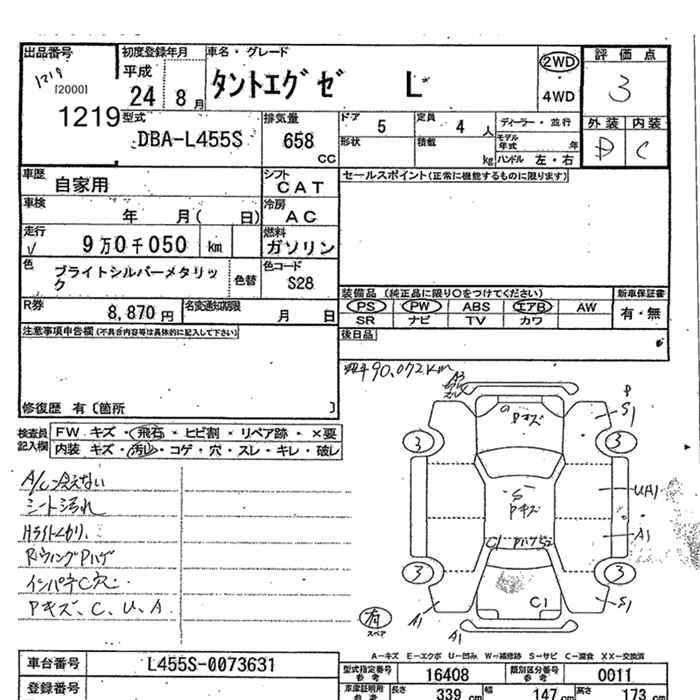 出品番号
1219
[20000]
1219
初度登録年月
平成
24 8 月
車名・グレード
タントエグゼ L
2WD
4WD
評価点
3
外装 内装
D C
型式
DBA-L455S
排気量
658
CC
ドア 5
定員 4 人
形状
積載 kg
ディーラー・並行
モデル年式 年
ハンドル 左・右
車歴
自家用
シフト
CAT
車検
年 月( 日)
冷房
AC
走行
√ 9万0千050 km
燃料
ガソリン
色
ブライトシルバーメタリック
色替
色コード
S28
R券
8,870 円
名変通知期限
月 日
セールスポイント(正常に機能するものに限ります)
装備品 (純正品に限り○をつけてください)
PS PW ABS エアB AW
SR ナビ TV カワ
新車保証書
有・無
後日品
注意事項申告欄(不具合内容等は具体的に記入して下さい)
修復歴 有〔箇所 〕
検査員記入欄
FW キズ・飛石・ヒビ割・リペア跡・×要
内装 キズ・汚れ・コゲ・穴・スレ・キレ・破レ
A/C冷えない
シート汚れ
Hライトくもり、
RウィングPハゲ
インパネC穴
Pキズ、C、U、A
90,072km
A3
Pキズ
P
S1
3
3
S
Pキズ
UA1
A1
C1 Pハゲ S2
3
3
C1
A1
S1
A1
有
スペア
A-キズ E-エクボ U-凹み W-補修跡 S-サビ C-腐食 XX-交換済
車台番号
L455S-0073631
登録番号
型式指定番号
参考
16408
類別区分番号
参考
0011
車庫証明用
参考
長さ 339 cm
幅 147 cm
高さ 173 cm